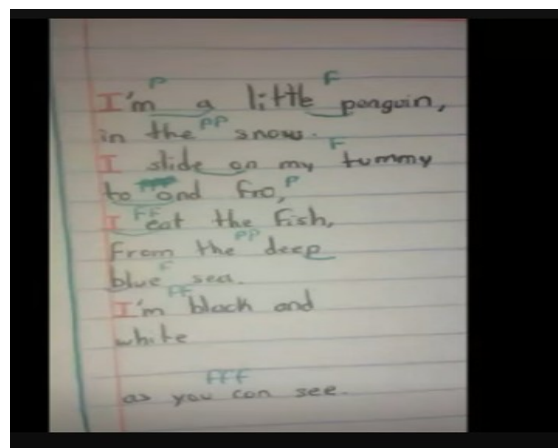 P F
I'm a little penguin,
PP
in the snow.
F
I slide on my tummy
PPP P
to and fro,
FF
I eat the fish,
PP
From the deep
F
blue sea.
FF
I'm black and
white
FFF
as you can see.